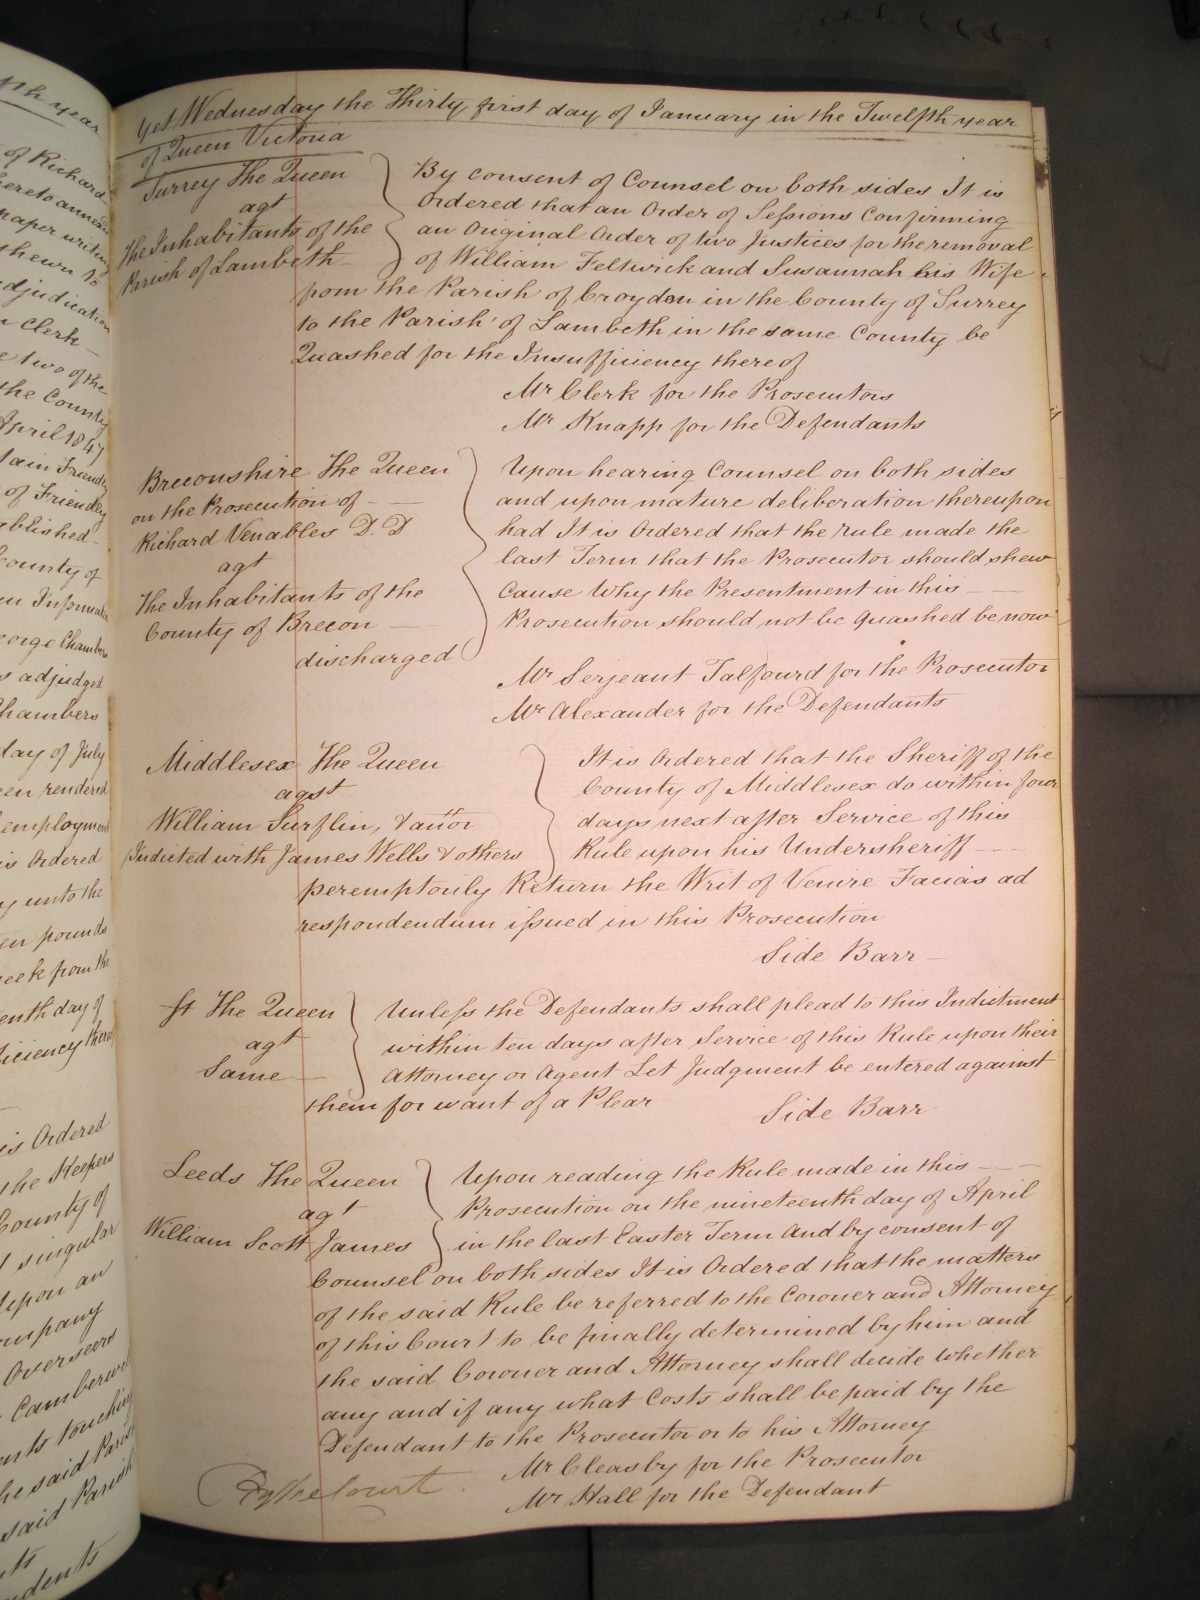 pth year
of Richard
hereto annexed
paper writing
shewn to
adjudication
Clerk
two of the
the County
April 1847
tain Friendly
of Friendly
ablished
County of
Informa
eorge Chambers
s adjudged
Chambers
day of July
een rendered
employment
is Ordered
y unto the
ten pounds
eek from the
enth day of
ficiency thereof
is Ordered
the Keepers
County of
singular
Upon an
ompany
Overseers
Camberwell
ents touching
he said Parish
said Parish
dents
Yet Wednesday the Thirty first day of January in the Twelfth year
of Queen Victoria
Surrey The Queen
agt
The Inhabitants of the
Parish of Lambeth
By consent of Counsel on both sides It is
Ordered that an Order of Sessions Confirming
an Original Order of two Justices for the removal
of William Feltwick and Susannah his Wife
from the Parish of Croydon in the County of Surrey
to the Parish of Lambeth in the same County be
Quashed for the Insufficiency thereof
Mr Clerk for the Prosecutors
Mr Knapp for the Defendants
Breconshire The Queen
on the Prosecution of
Richard Venables D.D
agt
The Inhabitants of the
County of Brecon
Upon hearing Counsel on both sides
and upon mature deliberation thereupon
had It is Ordered that the Rule made the
last Term that the Prosecutor should shew
Cause Why the Presentment in this
Prosecution should not be quashed be now
discharged
Mr Serjeant Talfourd for the Prosecutor
Mr Alexander for the Defendants
Middlesex The Queen
agst
William Surflin, & anor
Indicted with James Wells & others
It is Ordered that the Sheriff of the
County of Middlesex do within four
days next after Service of this
Rule upon his Undersheriff
peremptorily Return the Writ of Venire Facias ad
respondendum issued in this Prosecution
Side Barr
St The Queen
agt
Same
Unless the Defendants shall plead to this Indictment
within ten days after Service of this Rule upon their
Attorney or Agent Let Judgment be entered against
them for want of a Plear
Side Barr
Leeds The Queen
agt
William Scott James
Upon reading the Rule made in this
Prosecution on the nineteenth day of April
in the last Easter Term And by consent of
Counsel on both sides It is Ordered that the matters
of the said Rule be referred to the Coroner and Attorney
of this Court to be finally determined by him and
the said Coroner and Attorney shall decide whether
any and if any what Costs shall be paid by the
Defendant to the Prosecutor or to his Attorney
Mr Cleasby for the Prosecutor
Mr Hall for the Defendant
By the Court